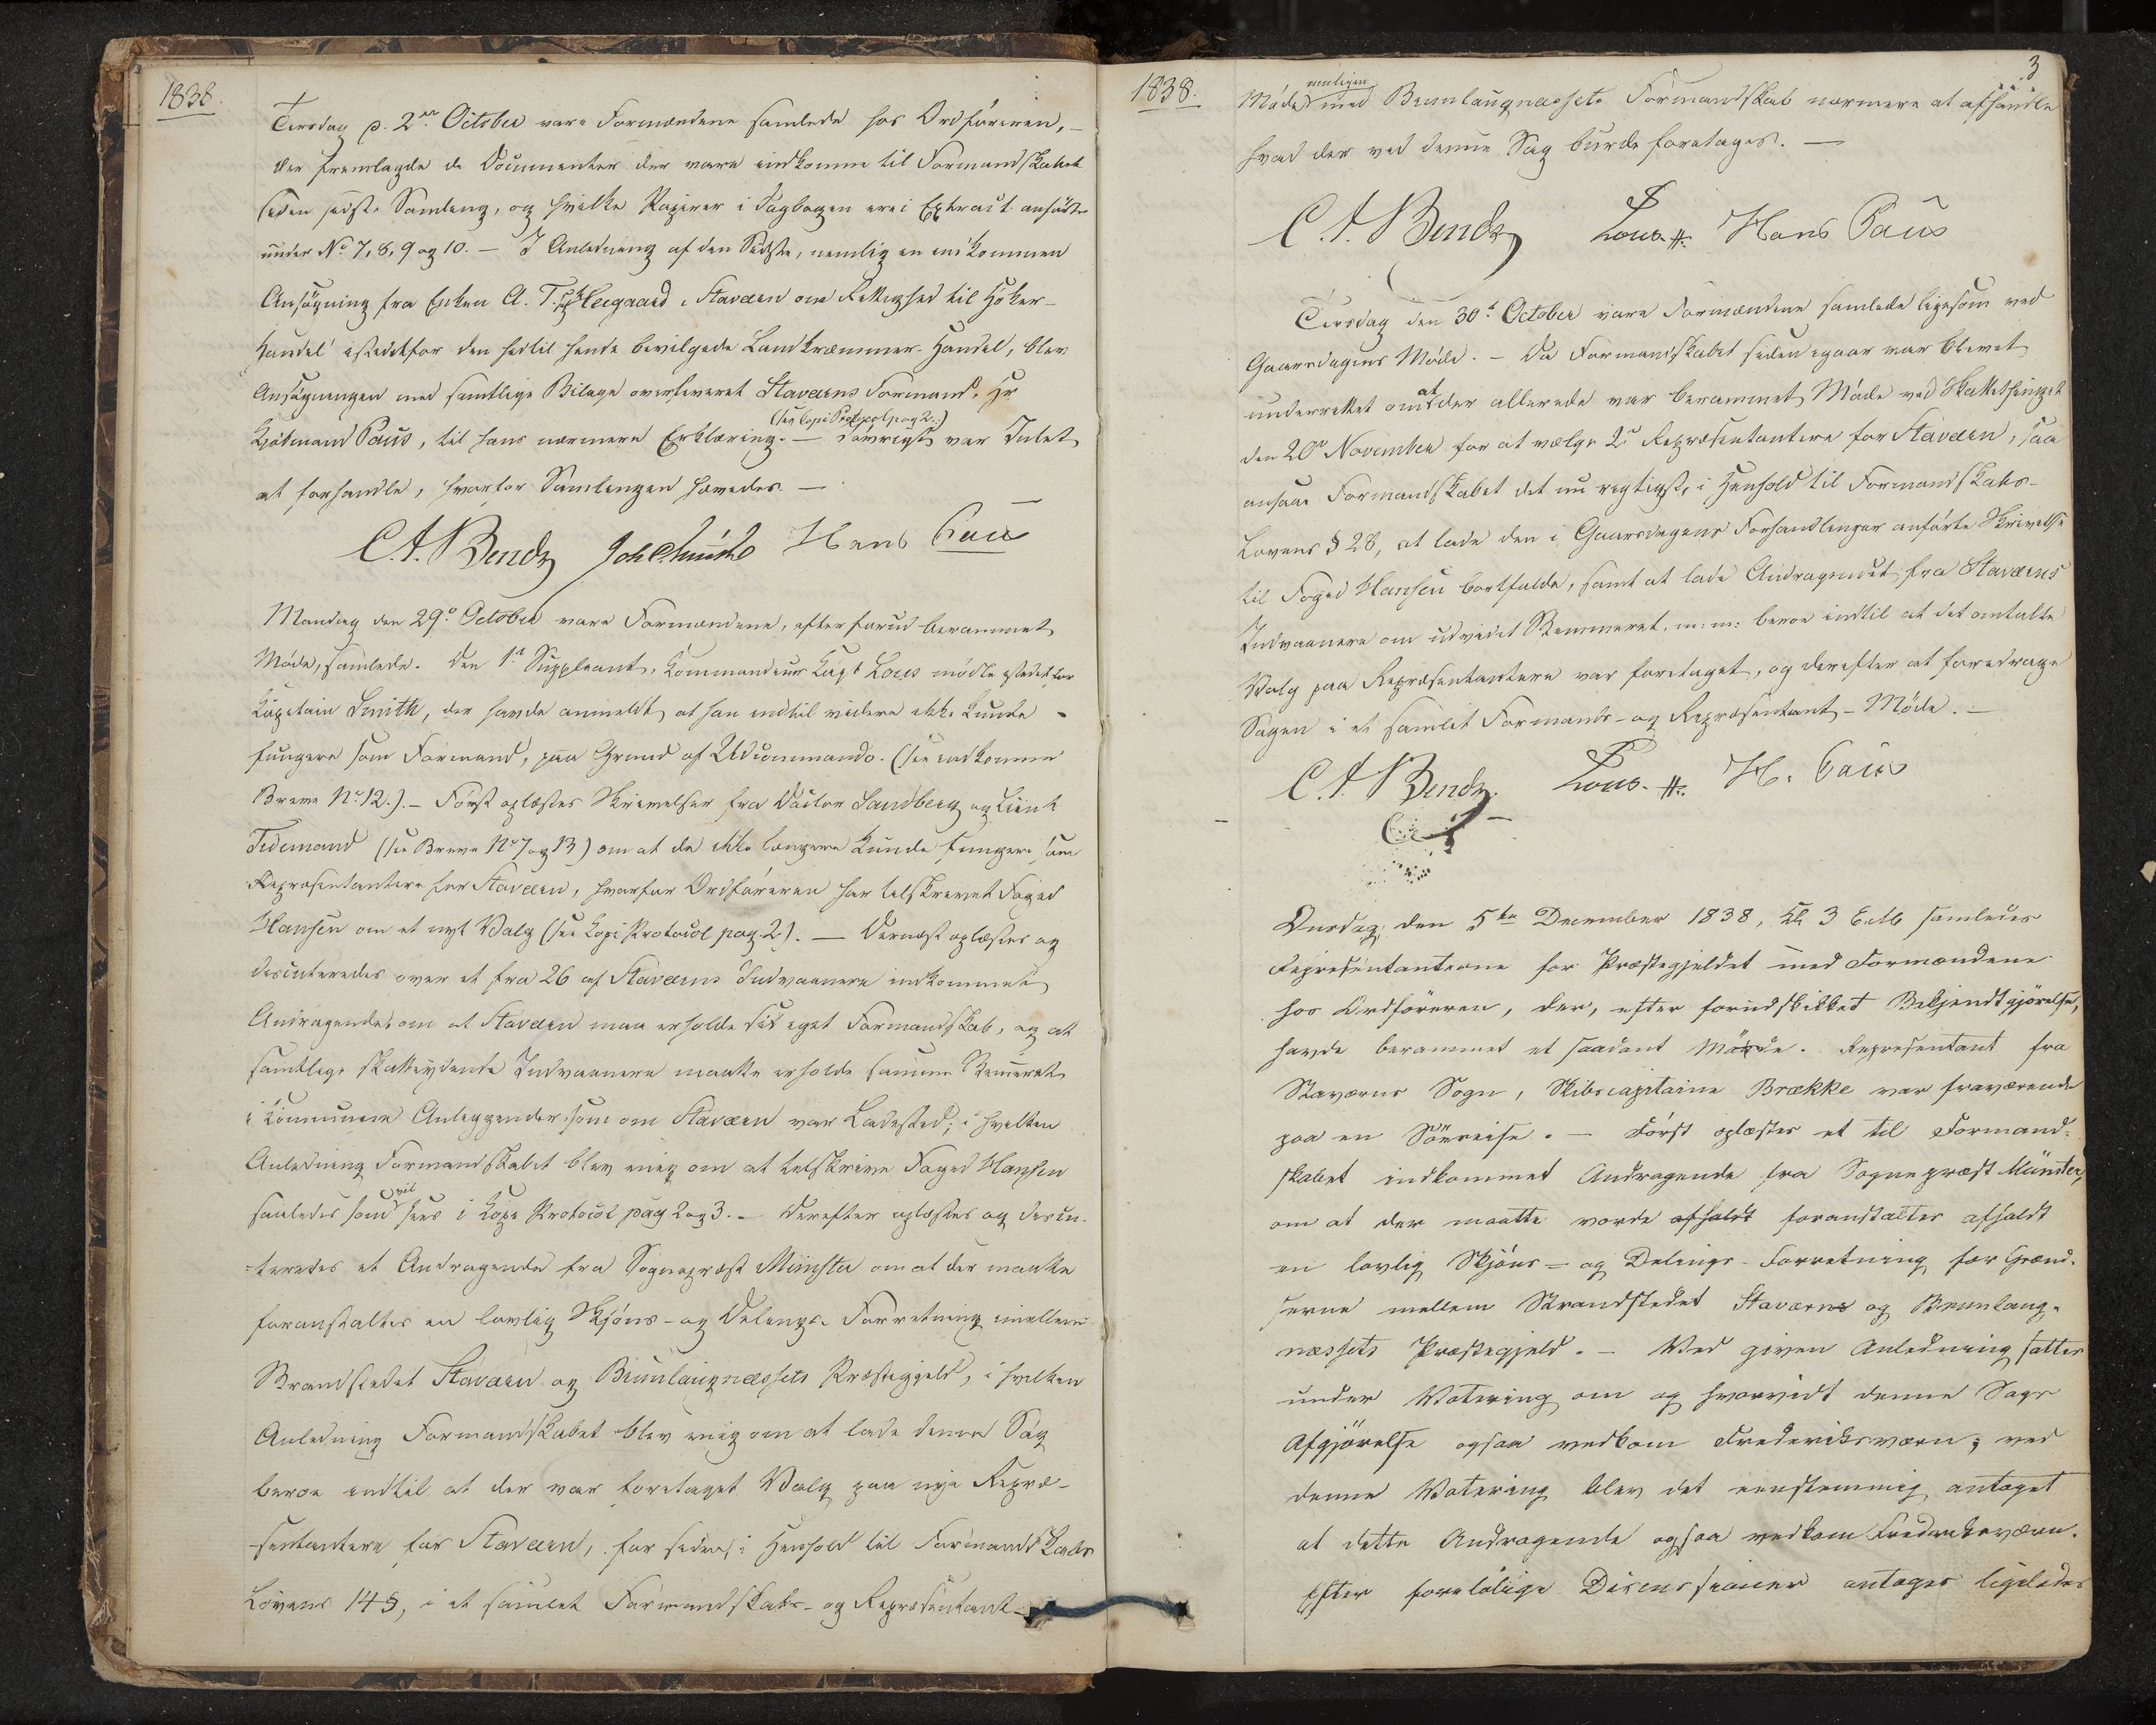 1838.
Tirsdag d. 2den October vare Formændene samlede hos Ordføreren, –
der fremlagde de Documenter der vare indkomne til Formandskabet
siden sidste Samling, og hvilke Papirer i Dagbogen ere i Extract anførte
under No 7, 8, 9 og 10. – I Anledning af den Sidste, nemlig en indkommen
Ansøgning fra Enken A. T. Heegaard i Staværn om Rettighed til Høker-
Handel istedetfor den hidtil hende bevilgede Landkræmmer-Handel, blev
Ansøgningen med samtlige Bilage overleveret Staværns Formand, Hr
(see Copie Protocol pag 2.)
Kjøbmand Paus, til hans nærmere Erklæring. – Iøvrigt var Intet
at forhandle, hvorfor Samlingen hævedes. –
C. A. Bendz Hans Paus
Mandag den 29de October vare Formændene, efter forud berammet
Møde, samlede. Den 1ste Suppleant, Kommandeur Capt. Lous mødte istedetfor
Capitain Smith, der havde anmeldt, at han indtil videre ikke kunde
fungere som Formand, paa Grund af Udcommando. (see indkomne
Breve No 12.). – Først oplæstes Skrivelser fra Doctor Sandberg og Lieut
Tidemand (see Breve No 7 og 13) om at de ikke længere kunde fungere som
Repræsentantere for Staværn, hvorfor Ordføreren har tilskrevet Foged
Hansen om et nyt Valg (see Copi Protocol pag. 2). – Dernæst oplæstes og
discuteredes over et fra 26 af Staværns Indvaanere indkommet
Andragende, om at Staværn maa erholde sit eget Formandskab, og at
samtlige skatteydende Indvaanere maatte erholde samme Stemmeret
i Communens Anliggender, som om Staværn var Ladested; i hvilken
Anledning Formandskabet blev enig om at tilskrive Foged Hansen
vil
saaledes som sees i Copi Protocol pag 2 og 3. – Derefter oplæstes og discu-
teredes et Andragende fra Sognepræst Münster om at der maatte
foranstaltes en lovlig Skjøns- og Delings-Forretning imellem
Strandstedet Staværn og Brunlaugnæssets Præstegjeld, i hvilken
Anledning Formandskabet blev enig om at lade denne Sag
beroe indtil at der var foretaget Valg paa nye Repræ-
sentantere for Staværn, for siden, i Henhold til Formandskabs
Lovens 14 §, i et samlet Formandskabs- og Repræsentant-
1838.
3
muligen
Møde med Brunlaugnæssets Formandskab nærmere at afhandle
hvad der ved denne Sag burde foretages. –
C. A. Bendz Lous Hans Paus
Tirsdag den 30te October vare Formændene samlede ligesom ved
Gaarsdagens Møde. – Da Formandskabet siden igaar var blevet
at
underrettet om der allerede var berammet Møde ved Skattethinget
den 20de November for at vælge 2de Repræsentantere for Staværn, saa
ansaae Formandskabet det nu rigtigst, i Henhold til Formandskabs-
Lovens § 28, at lade den i Gaarsdagens Forhandlinger anførte Skrivelse
til Foged Hansen bortfalde, samt at lade Andragendet fra Staværns
Indvaanere om udvidet Stemmeret m: m: beroe indtil at det omtalte
Valg paa Repræsentantere var foretaget, og derefter at foredrage
Sagen i et samlet Formands- og Repræsentant-Møde. –
C. A. Bendz. Lous. H. Paus
Onsdag den 5te December 1838, Kl 3 E.M samledes
Representanterne for Præstegjeldet med Formændene
hos Ordføreren, der, efter forudskikket Bekjendtgjørelse,
havde berammet et saadant Møde. Representant fra
Staværns Sogn, Skibscapitaine Brække var fraværende
paa en Søereise. – Først oplæstes et til Formand-
skabet indkommet Andragende fra Sognepræst Münster,
om at der maatte vorde afholdt foranstaltes afholdt
en lovlig Skjøns- og Delings-Forretning for Grænd-
serne mellem Strandstedet Staværns og Brunlaug-
næssets Præstegjeld. – Ved given Anledning sattes
under Votering om og hvorvidt denne Sags
Afgjørelse ogsaa vedkom Frederiksværn; ved
denne Votering blev det eenstemmig antaget
at dette Andragende ogsaa vedkom Frederiksværn.
Efter foreløbige Discussioner antoges ligeledes